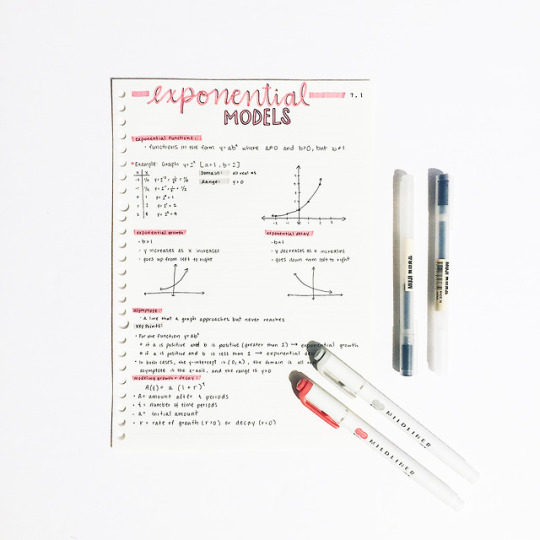 exponential 7.1
MODELS
exponential functions:
• functions in the form y=abˣ where a≠0 and b>0, but b≠1
*Example: Graph y=2ˣ [a=1, b=2]
Domain: all real #s
Range: y>0
exponential growth
• b>1
• y increases as x increases
• goes up from left to right
exponential decay
• y decreases as x increases
• goes down from left to right
asymptote
• a line that a graph approaches but never reaches
key points:
• For the function y=abˣ
if a is positive and b is positive (greater than 1) → exponential growth
if a is positive and b is less than 1 → exponential
• In both cases, the y-intercept is (0,a), the domain is all
asymptote is the x-axis, and the range is y>0
modeling growth + decay:
A(t) = a (1 + r)ᵗ
• A = amount after t periods
• t = number of time periods
• a = initial amount
• r = rate of growth (r>0) or decay (r<0)
MILDLINER
MILDLINER
MUJI
MUJI